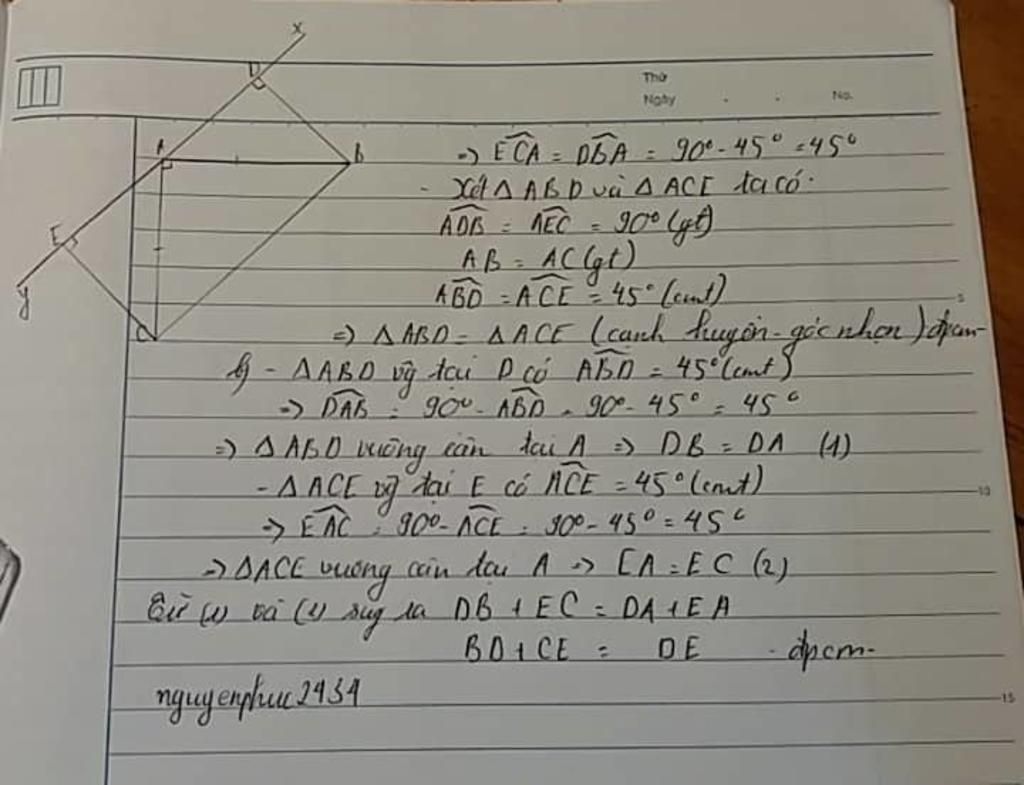 x
D
Thứ
Ngày . . No.
A
B
=> ECA = DBA = 90° - 45° = 45°
- Xét Δ ABD và Δ ACE ta có:
ADB = AEC = 90° (gt)
E
AB = AC (gt)
y
ABD = ACE = 45° (cmt)
5
C
=> Δ ABD = Δ ACE (cạnh huyền - góc nhọn) đpcm-
b) - Δ ABD vg tại D có ABD = 45° (cmt)
=> DAB = 90° - ABD = 90° - 45° = 45°
=> Δ ABD vuông cân tại A => DB = DA (1)
- Δ ACE vg tại E có ACE = 45° (cmt)
10
=> EAC = 90° - ACE = 90° - 45° = 45°
=> Δ ACE vuông cân tại A => EA = EC (2)
Từ (1) và (2) suy ra DB + EC = DA + EA
BD + CE = DE - đpcm-
nguyenphuc2434
15